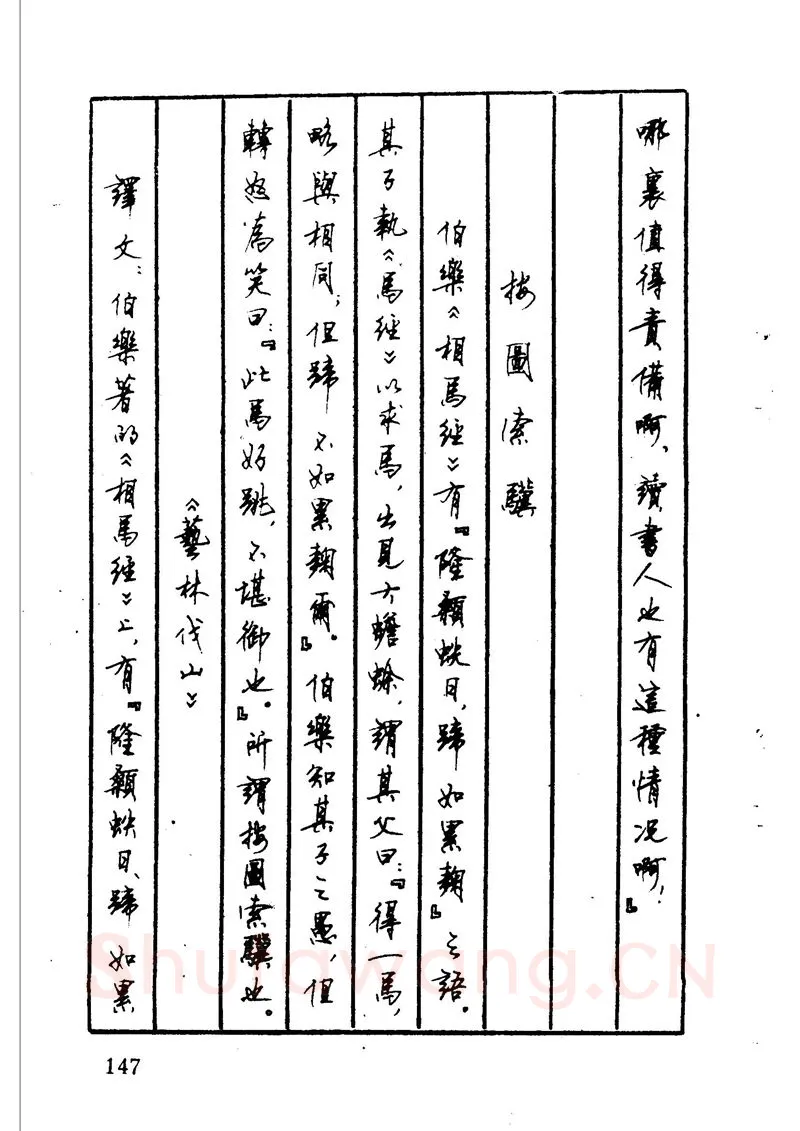 哪裏值得責備啊，讀書人也有這種情况啊！』
按圖索驥
伯樂《相馬經》有『隆顙蚨日，蹄如累麴』之語。
其子執《馬經》以求馬，出見大蟾蜍，謂其父曰：『得一馬，
略與相同；但蹄不如累麴爾』。伯樂知其子之愚，但
轉怒為笑曰：『此馬好跳，不堪御也。』所謂按圖索驥也。
《藝林伐山》
譯文：伯樂著的《相馬經》上，有『隆顙蚨日、蹄如累
147
Shufawang.CN